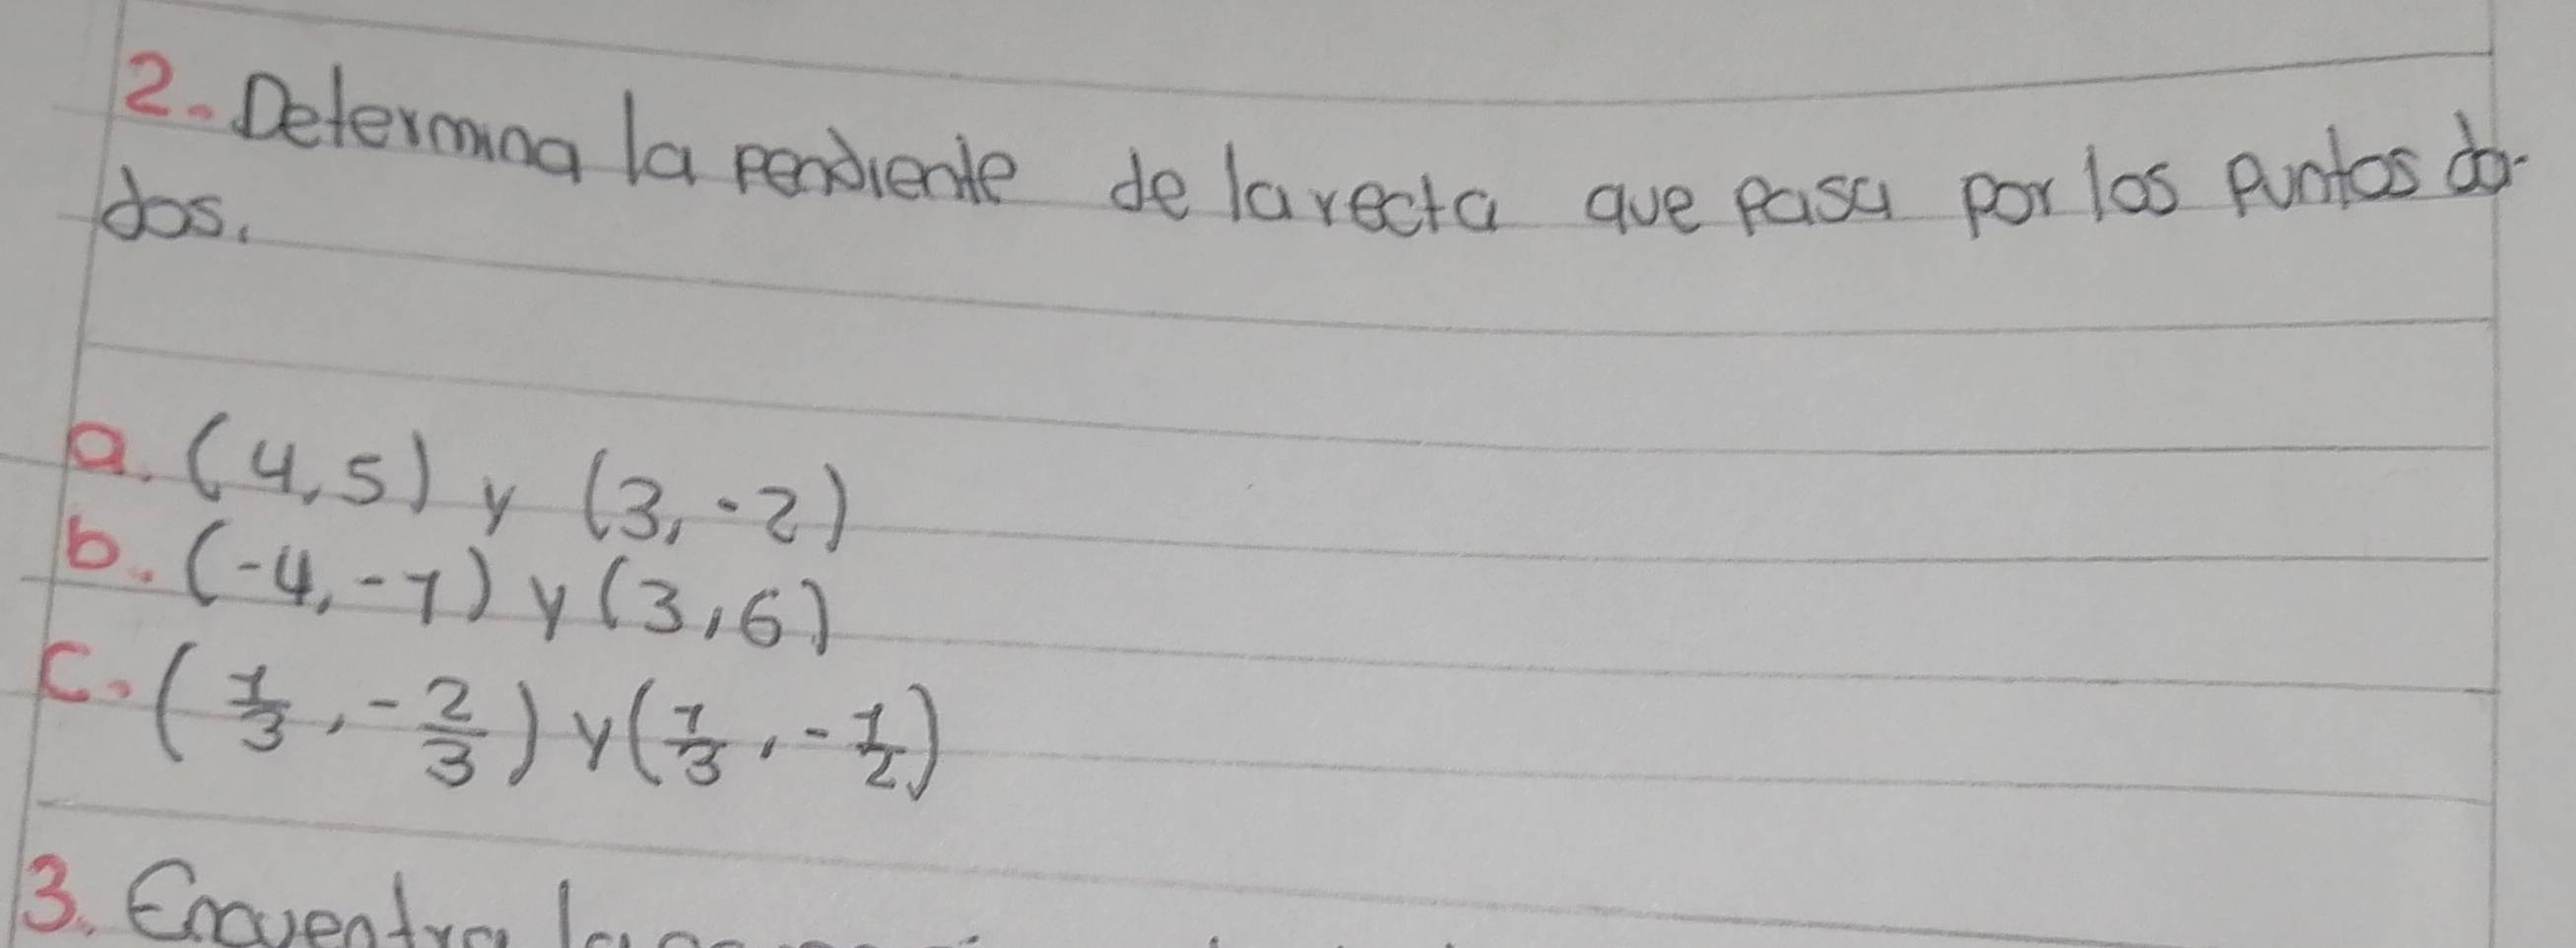 2. Determina la pendiente de la recta que pasa por los puntos da-
dos.
a. (4,5) y (3,-2)
b. (-4,-1) y (3,6)
c. (1/3, -2/3) y (1/3, -1/2)
3. Encuentra